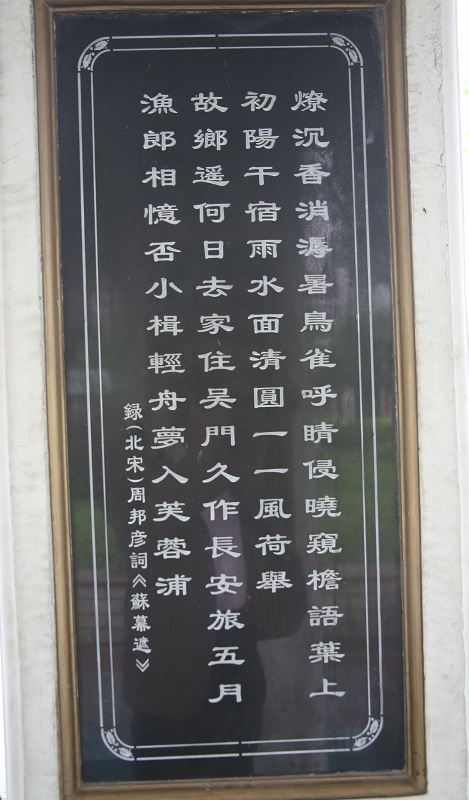 燎沉香消溽暑鳥雀呼睛侵曉窺檐語葉上
初陽干宿雨水面清圓一一風荷舉
故鄉遥何日去家住吴門久作長安旅五月
漁郎相憶否小楫輕舟夢入芙蓉浦
録(北宋)周邦彦詞《蘇幕遮》